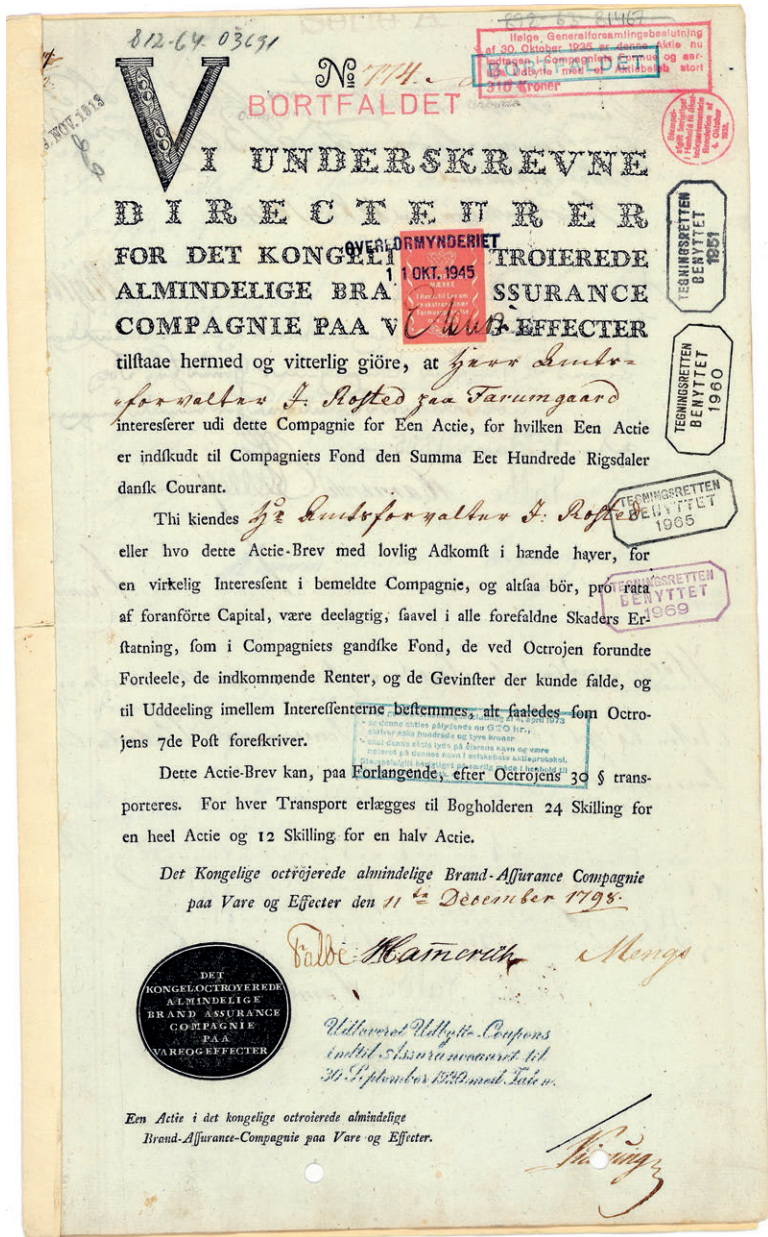 812-64 03691
892-65 81467
Ifølge Generalforsamlingsbeslutning
af 30. Oktober 1925 er denne Aktie nu
Kompagniets Formue og
Udbytte med et Aktiebeløb stort
310 Kroner
BORTFALDET
No 774.
BORTFALDET
NOV. 1813
VI UNDERSKREVNE
DIRECTEURER
FOR DET KONGELI TROIEREDE
ALMINDELIGE BRA SSURANCE
COMPAGNIE PAA V EFFECTER
OVERFORMYNDERIET
11 OKT. 1945
MÆRKE
TEGNINGSRETTEN
BENYTTET
1951
TEGNINGSRETTEN
BENYTTET
1960
tilstaae hermed og vitterlig giöre, at Herr Amts-
forvalter J. Rosted paa Farumgaard
interesserer udi dette Compagnie for Een Actie, for hvilken Een Actie
er indskudt til Compagniets Fond den Summa Eet Hundrede Rigsdaler
dansk Courant.
TEGNINGSRETTEN
BENYTTET
1965
Thi kiendes Hr Amtsforvalter J. Rosted
eller hvo dette Actie-Brev med lovlig Adkomst i hænde haver, for
en virkelig Interessent i bemeldte Compagnie, og altsaa bör, pro rata
af foranförte Capital, være deelagtig, saavel i alle forefaldne Skaders Er-
statning, som i Compagniets gandske Fond, de ved Octrojen forundte
Fordeele, de indkommende Renter, og de Gevinster der kunde falde, og
til Uddeeling imellem Interessenterne bestemmes, alt saaledes som Octro-
jens 7de Post foreskriver.
TEGNINGSRETTEN
BENYTTET
1969
april 1973
denne akties pålydende nu 620 kr.,
skriver seks hundrede og tyve kroner
skal denne aktie lyde på ejerens navn og være
noteret på dennes navn i selskabets aktieprotokol.
Dette Actie-Brev kan, paa Forlangende, efter Octrojens 30 § trans-
porteres. For hver Transport erlægges til Bogholderen 24 Skilling for
en heel Actie og 12 Skilling for en halv Actie.
Det Kongelige octrojerede almindelige Brand-Assurance Compagnie
paa Vare og Effecter den 11te December 1798.
Falbe Hamerich Mengs
DET
KONGEL OCTROYEREDE
ALMINDELIGE
BRAND ASSURANCE
COMPAGNIE
PAA
VARE OG EFFECTER
Udleveret Udbytte-Coupons
indtil Assuranceaaret til
30 September 1920 med Talon.
Een Actie i det kongelige octroierede almindelige
Brand-Assurance-Compagnie paa Vare og Effecter.